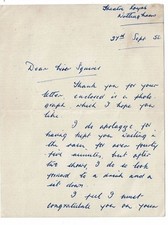 Theatre Royal
Nottingham
24th Sept 52
Dear Miss Squires
Thank you for your
letter enclosed is a photo
graph which I hope you
like
I do apologise for
having kept you waiting in
the rain for over forty
five minutes, but after
two shows I do so look
forward to a drink and a
sit down
I feel I must
congratulate you on your